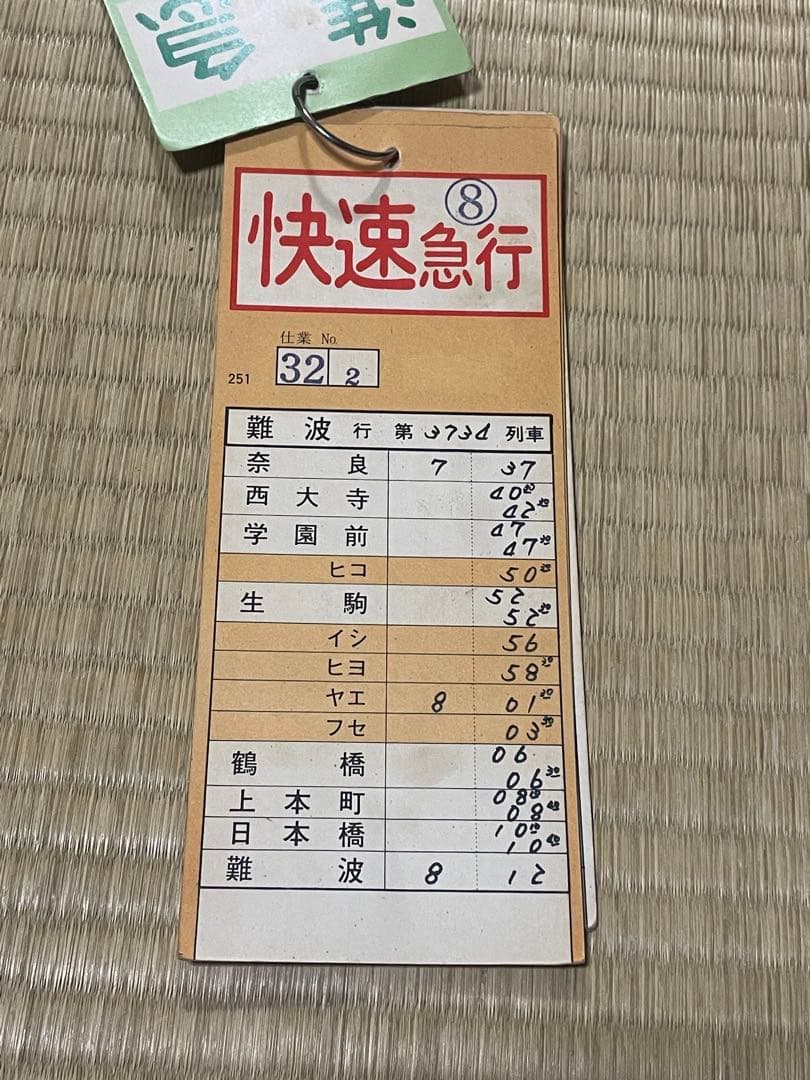 準急
⑧
快速急行
仕業 No.
251 32 2
難波行 第3734列車
奈良 7 37
西大寺 40
42
学園前 47
47
ヒコ 50
生駒 52
52
イシ 56
ヒヨ 58 30
ヤエ 8 01 30
フセ 03 30
鶴橋 06
06 30
上本町 08
08
日本橋 10
10
難波 8 12